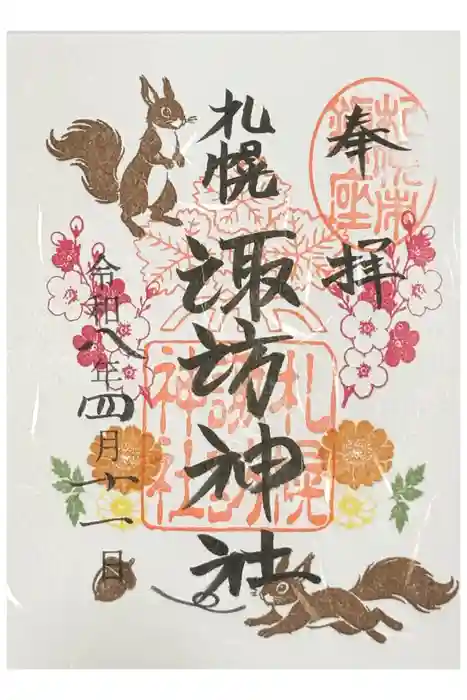 奉拝
札幌市
鎮座
札幌
諏訪神社
札幌
諏訪
神社
令和八年四月十一日